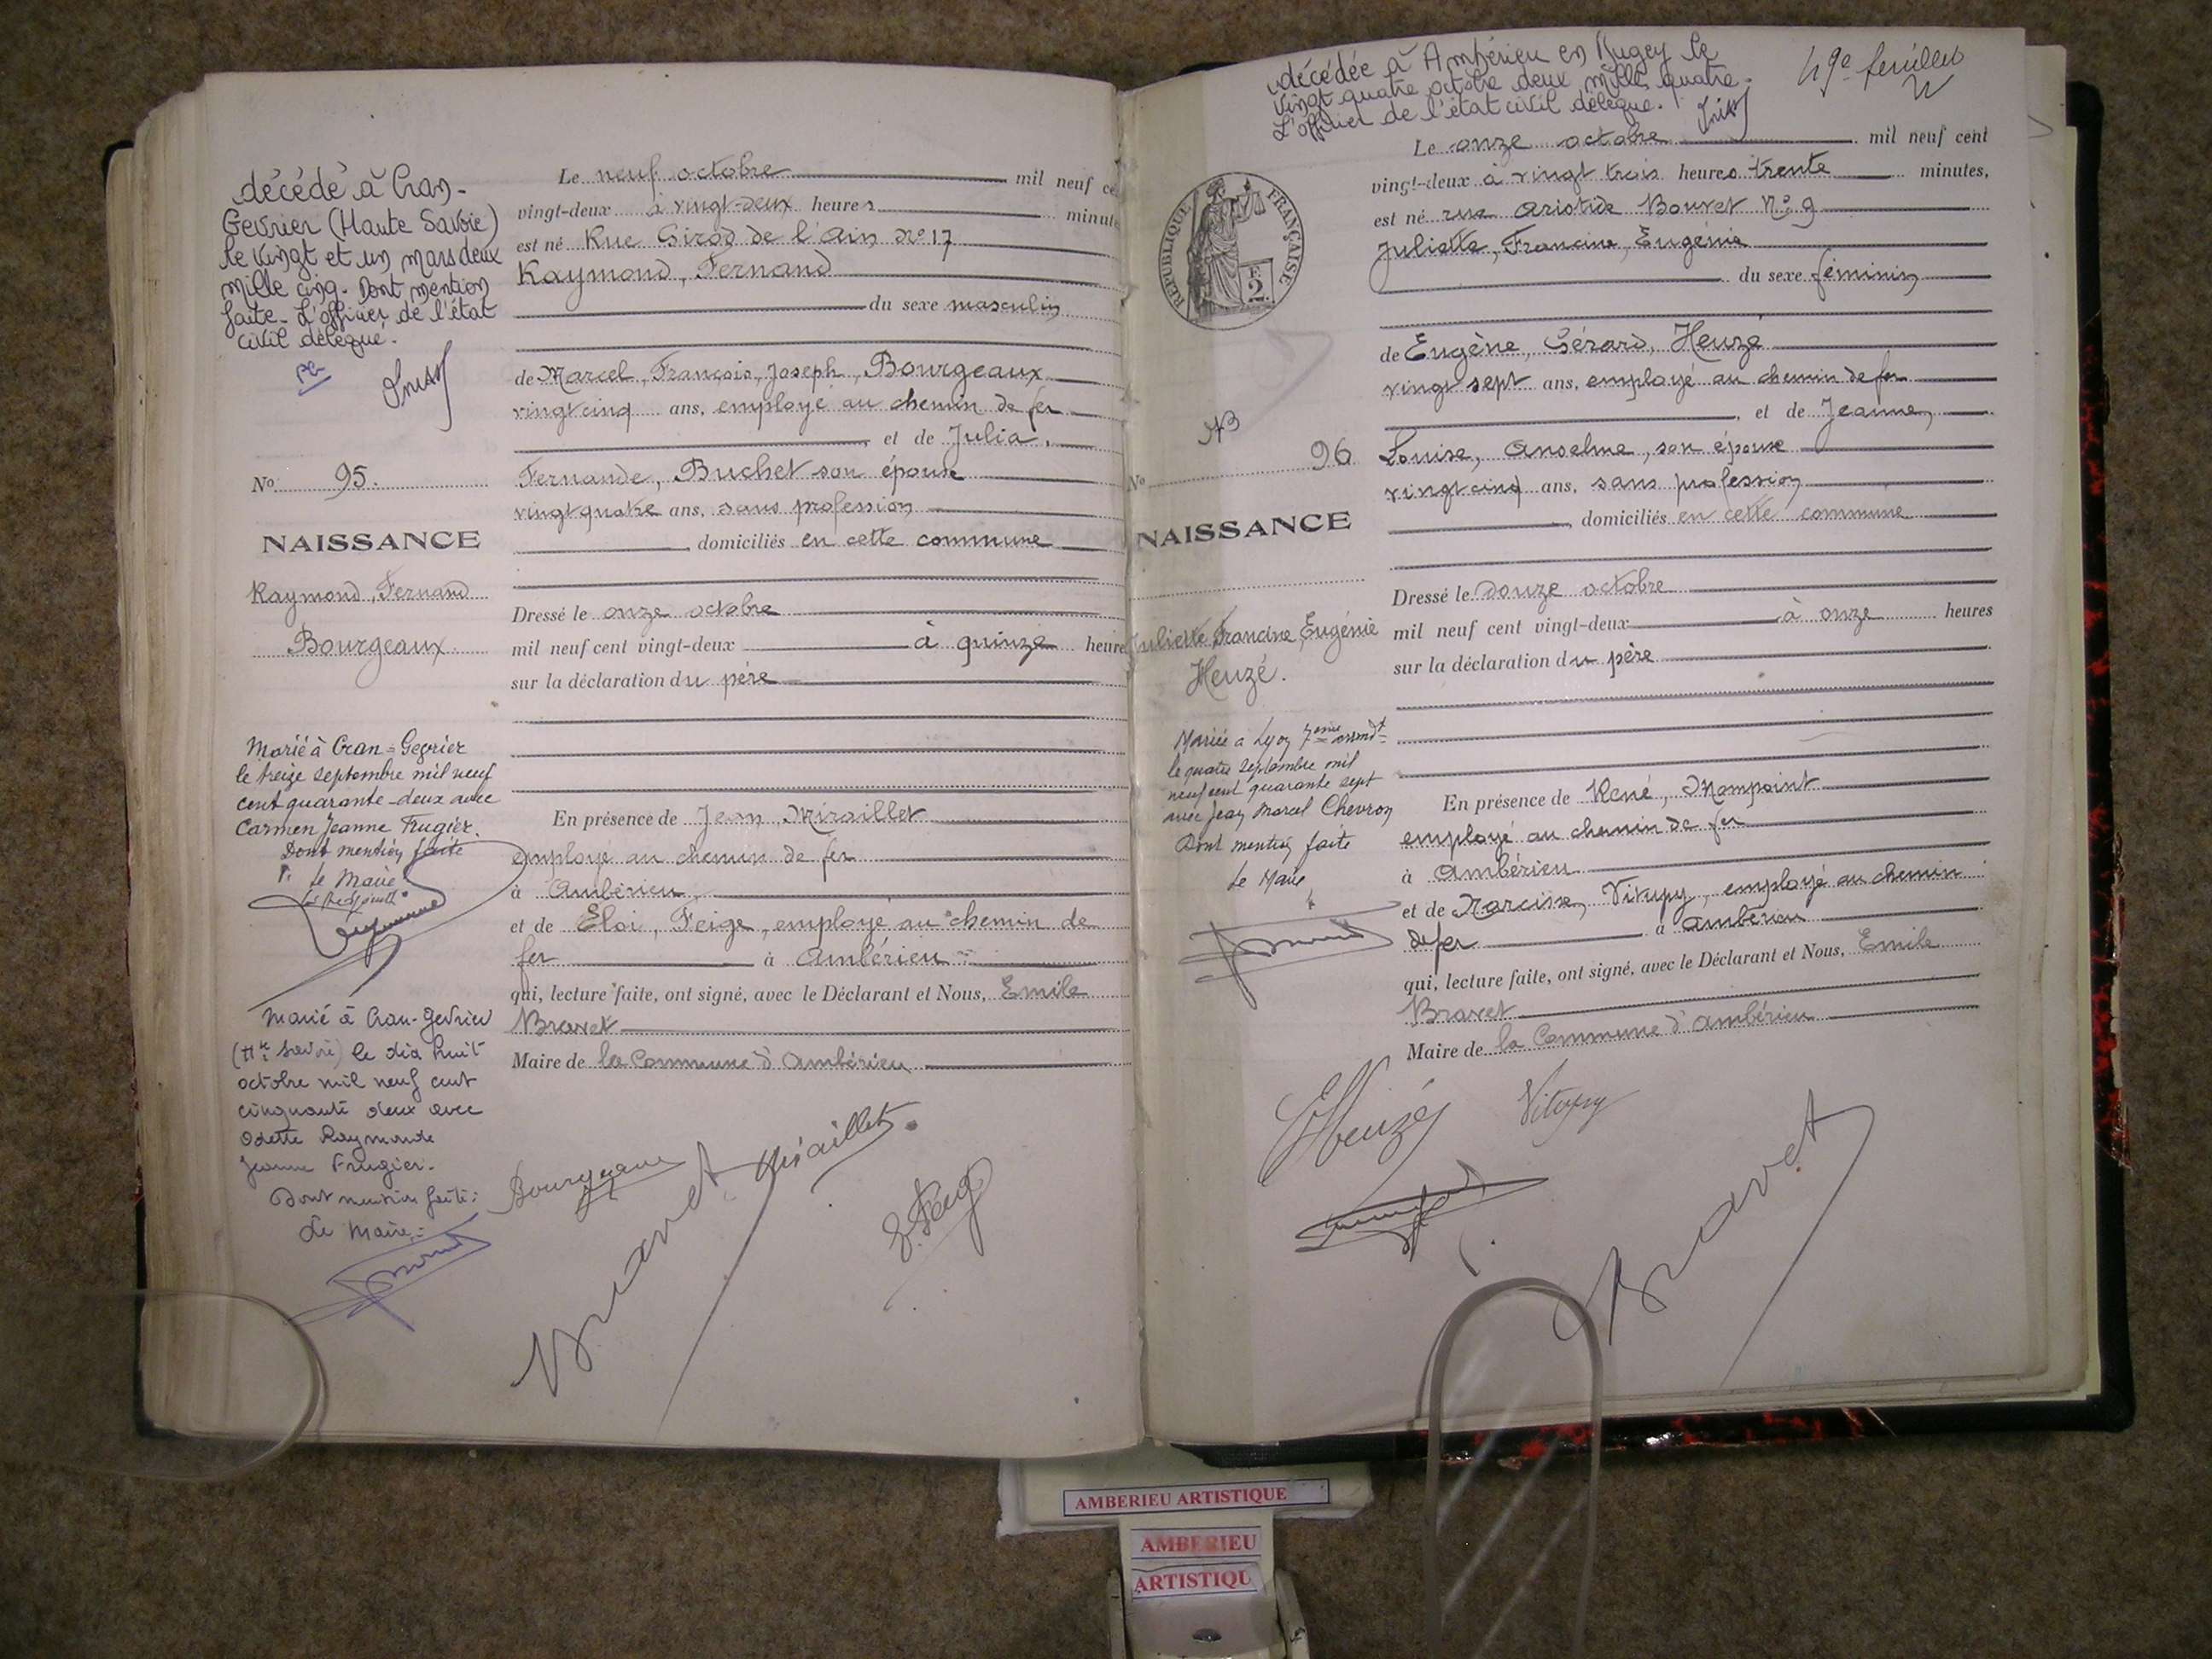 décédé à Cran-
Gevrier (Haute Savoie)
le vingt et un mars deux
mille cinq. Dont mention
faite. L'officier de l'état
civil délégué.
No 95.
NAISSANCE
Raymond, Fernand
Bourgeaux
Marié à Cran-Gevrier
le treize septembre mil neuf
cent quarante-deux avec
Carmen Jeanne Frugier.
Dont mention faite
Le Maire
Marié à Cran-Gevrier
(Hte Savoie) le dix huit
octobre mil neuf cent
cinquante deux avec
Odette Raymonde
Jeanne Frugier.
Dont mention faite:
Le Maire:
Le neuf octobre mil neuf ce
vingt-deux à vingt-deux heures minute
est né Rue Girod de l'Ain No 17
Raymond, Fernand
du sexe masculin
de Marcel, François, Joseph, Bourgeaux
vingt cinq ans, employé au chemin de fer
et de Julia,
Fernande, Buchet son épouse
vingt quatre ans, sans profession
domiciliés en cette commune
Dressé le onze octobre
mil neuf cent vingt-deux à quinze heure
sur la déclaration du père
En présence de Jean, Miraillet
employé au chemin de fer
à Ambérieu,
et de Eloi, Feige, employé au chemin de
fer à Ambérieu
qui, lecture faite, ont signé, avec le Déclarant et Nous, Emile
Bravet
Maire de la Commune d'Ambérieu
Bourgeaux
Bravet
Miraillet
E. Feig
décédée à Ambérieu en Bugey le
vingt quatre octobre deux mille quatre.
L'officier de l'état civil délégué.
49e feuillet
RÉPUBLIQUE FRANÇAISE
2 F.
No 96
NAISSANCE
Juliette Francine, Eugénie
Heuzé.
Mariée à Lyon 7ème arrondt
le quatre septembre mil
neuf cent quarante sept
avec Jean Marcel Chevron
Dont mention faite
Le Maire
Le onze octobre mil neuf cent
vingt-deux à vingt trois heures trente minutes,
est né rue Aristide Bouvet No 9
Juliette, Francine, Eugénie
du sexe féminin
de Eugène, Gérard, Heuzé
vingt sept ans, employé au chemin de fer
et de Jeanne,
Louise, Anselme, son épouse
vingt cinq ans, sans profession
domiciliés en cette commune
Dressé le douze octobre
mil neuf cent vingt-deux à onze heures
sur la déclaration du père
En présence de René, Mompoint
employé au chemin de fer
à Ambérieu
et de Narcisse, Vitupy, employé au chemin
de fer à Ambérieu
qui, lecture faite, ont signé, avec le Déclarant et Nous, Emile
Bravet
Maire de la Commune d'Ambérieu
EHeuzé
Vitupy
Bravet
AMBERIEU ARTISTIQUE
AMBERIEU
ARTISTIQU